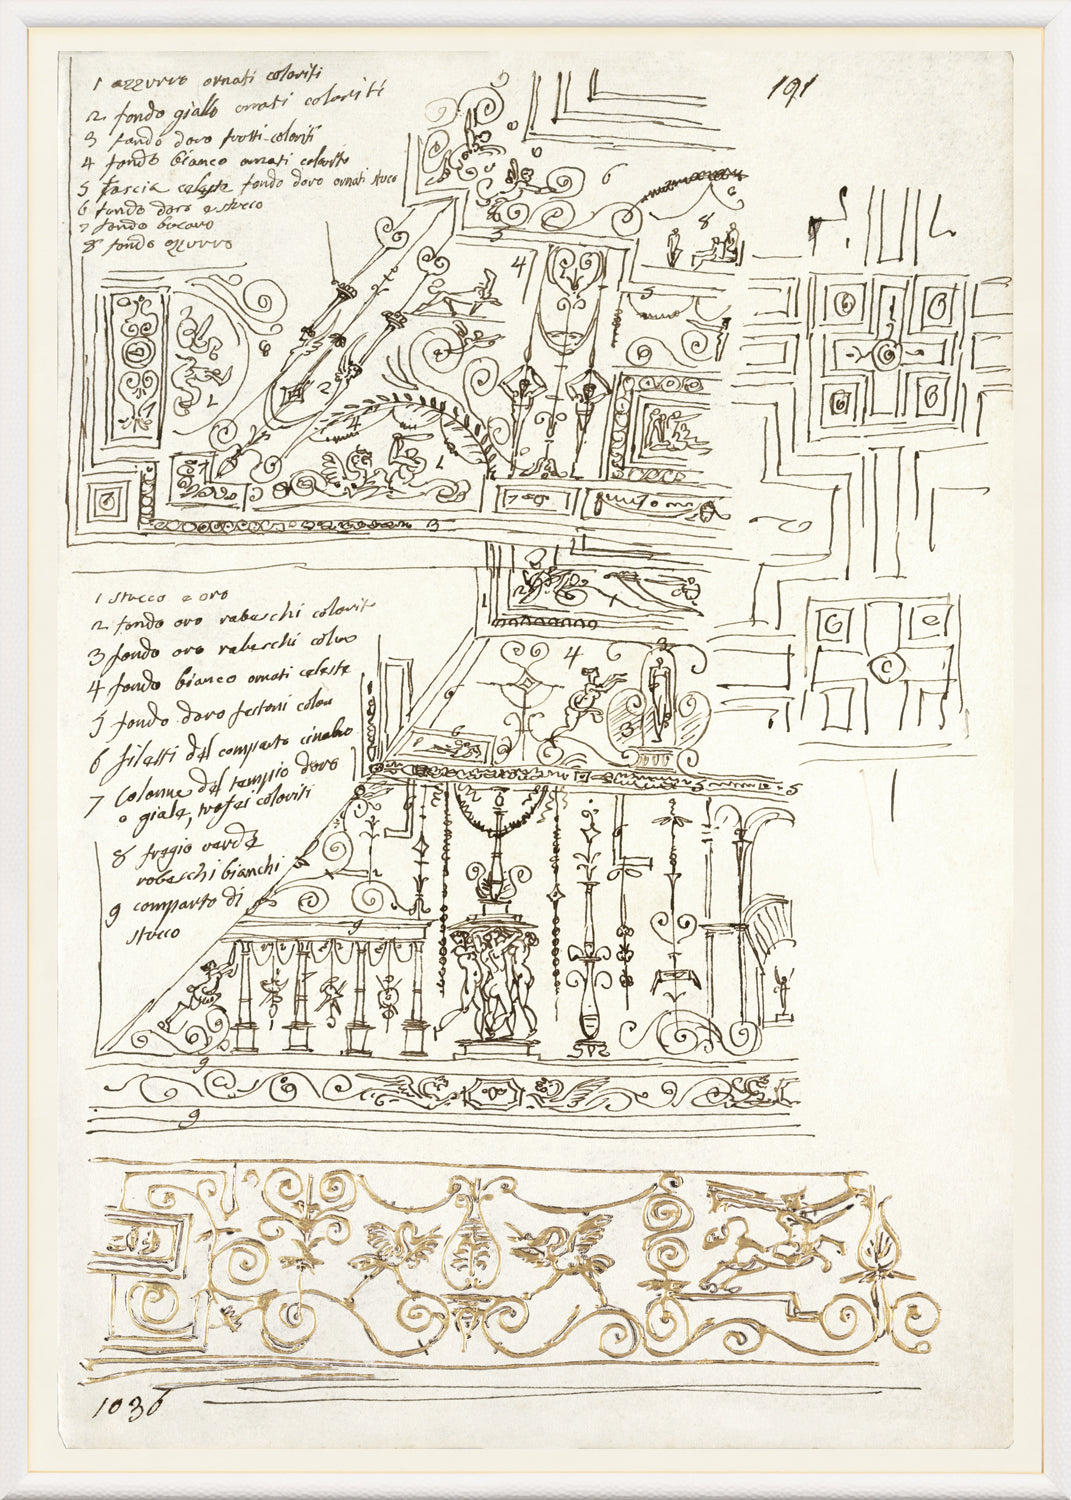 191
1 azzurro ornati coloriti
2 fondo giallo ornati coloriti
3 fondo doro frotti coloriti
4 fondo bianco ornati colorito
5 fascia celeste fondo doro ornati stuco
6 fondo doro e stuco
7 fondo
8 fondo azzurro
6
8
3
4
5
8
2
1
4
1
7
3
1 stucco e oro
2 fondo oro rabeschi colorit
3 fondo oro rabeschi colori
4 fondo bianco ornati celeste
5 fondo doro festoni colori
6 filetti del comparto cinabro
7 Colonne del tempio doro
o giale, trofei coloriti
8 fregio verde
rabeschi bianchi
9 comparto di
stucco
2
1
4
3
9
6
5
9
9
9
G
B
G
B
G
e
C
1036